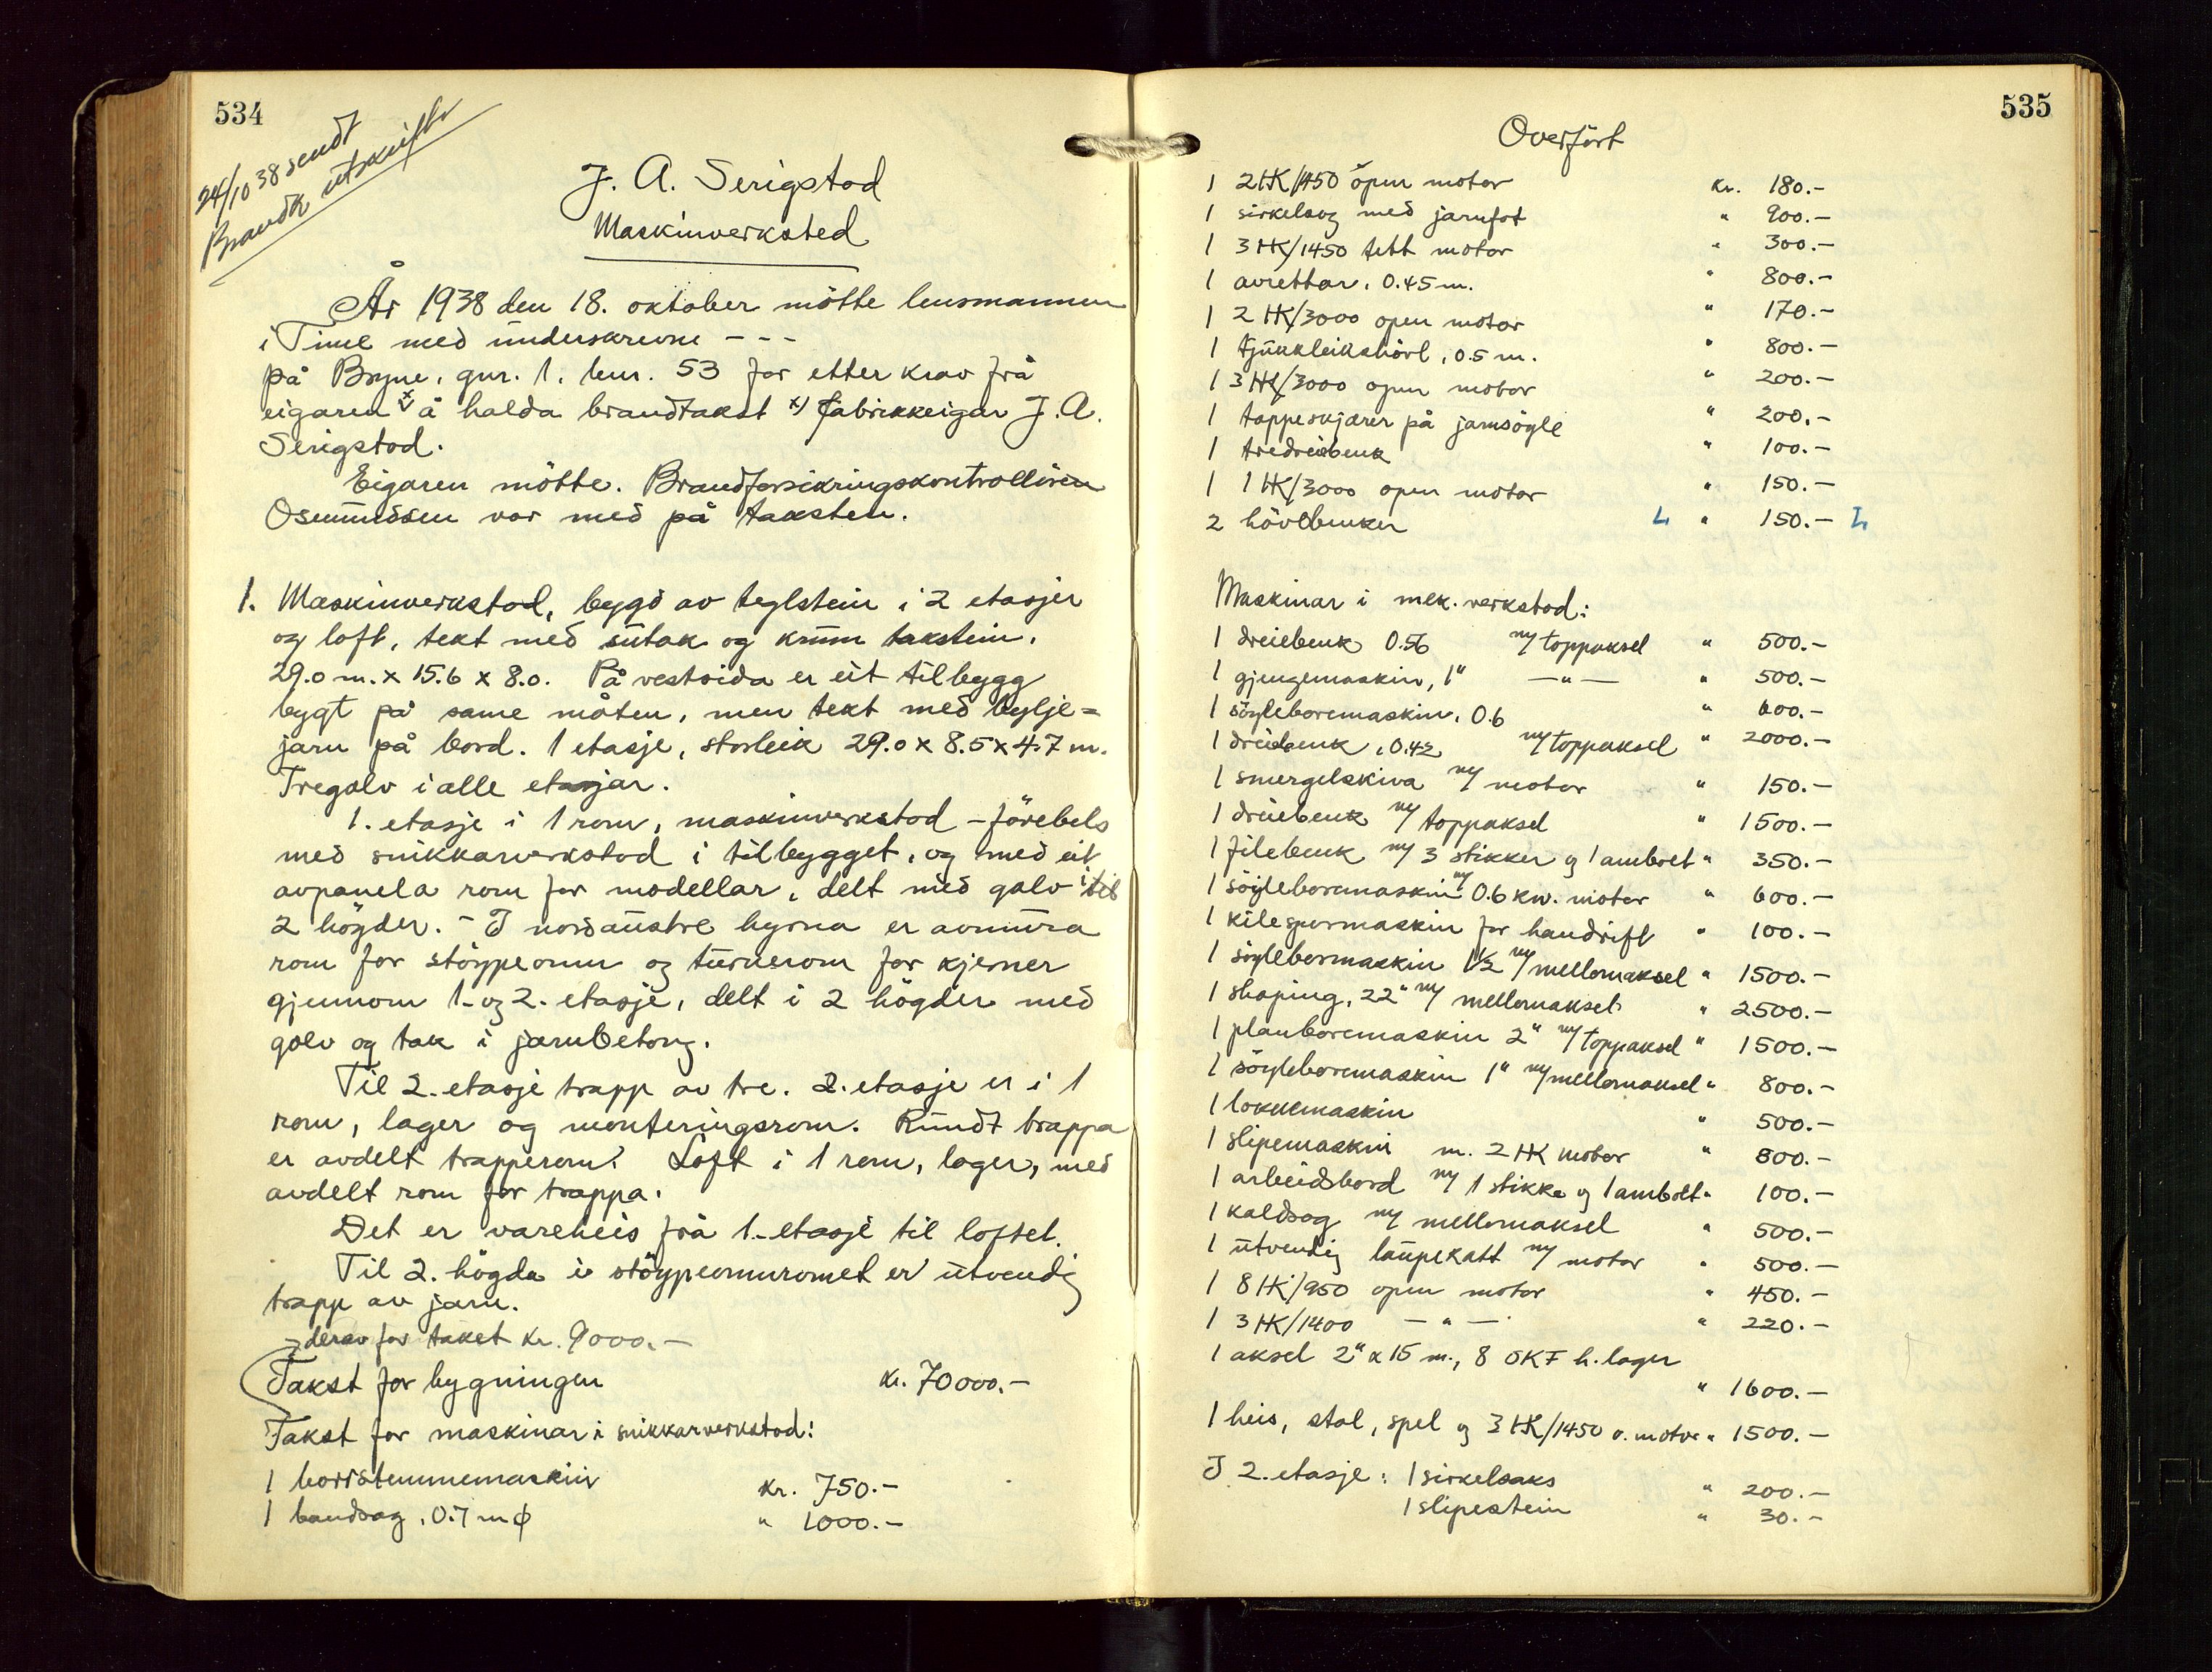 534
24/10 38 sendt
Brandk utskrift
J. A. Serigstad
Maskinverksted
År 1938 den 18. oktober mötte lensmannen
i Time med underskrevne - - -
på Bryne, gnr. 1, bnr. 53 for etter krav frå
eigaren x å halda brandtakst x) fabrikkeigar J. A.
Serigstad.
Eigaren mötte. Brandforsikringskontrollören
Osmundsen var med på taksten.
1. Maskinverkstad, bygd av teglstein i 2 etasjer
og loft, tekt med sutak og krum takstein.
29.0 m. x 15.6 x 8.0. På vestsida er eit tilbygg
bygt på same måten, men tekt med bylje=
jarn på bord. 1 etasje, storleik 29.0 x 8.5 x 4.7 m.
Tregolv i alle etasjar.
1. etasje i 1 rom, maskinverkstad - förebels
med snikkarverkstad i tilbygget, og med eit
avpanela rom for modellar, delt med golv i til
2 högder. - I nordaustre hyrna er avmura
rom for stöypeomn og turnerom for kjerner
gjennom 1. og 2. etasje, delt i 2 högder med
golv og tak i jarnbetong.
Til 2. etasje trapp av tre. 2. etasje er i 1
rom, lager og monteringsrom. Rundt trappa
er avdelt trapperom. Loft i 1 rom, lager, med
avdelt rom for trappa.
Det er vareheis frå 1. etasje til loftet.
Til 2. högda i stöypeomnromet er utvendig
trapp av jarn.
derav for taket kr. 9000.-
Takst for bygningen kr. 70000.-
Takst for maskinar i snikkarverkstad:
1 borrstemmemaskin kr. 750.-
1 bandsag, 0.7 m φ " 1000.-
535
Overfört
1 2 HK/1450 open motor kr. 180.-
1 sirkelsag med jarnfot " 900.-
1 3 HK/1450 tett motor " 300.-
1 avrettar, 0.45 m. " 800.-
1 2 HK/3000 open motor " 170.-
1 tjukkleikshövl, 0.5 m. " 800.-
1 3 HK/3000 open motor " 200.-
1 tappeskjærer på jarnsögle " 200.-
1 tredreiebenk " 100.-
1 1 HK/3000 open motor " 150.-
2 hövlbenker " 150.-
Maskinar i mek. verkstad:
1 dreiebenk 0.56 m/ toppaksel " 500.-
1 gjengemaskin, 1" —"— " 500.-
1 söyleboremaskin, 0.6 " 600.-
1 dreiebenk, 0.42 m/ toppaksel " 2000.-
1 smergelskiva m/ motor " 150.-
1 dreiebenk m/ toppaksel " 1500.-
1 filebenk m/ 3 stikker og 1 ambolt " 350.-
1 söyleboremaskin m/ 0.6 kw. motor " 600.-
1 kilespormaskin for handdrift " 100.-
1 söylebormaskin 1½ m/ mellomaksel " 1500.-
1 shaping, 22" m/ mellomaksel " 2500.-
1 planboremaskin 2" m/ toppaksel " 1500.-
1 söyleboremaskin 1" m/ mellomaksel " 800.-
1 lokkemaskin " 500.-
1 slipemaskin m. 2 HK motor " 800.-
1 arbeidsbord m/ 1 stikke og 1 ambolt " 100.-
1 kaldsag m/ mellomaksel " 500.-
1 utvendig laupekatt m/ motor " 500.-
1 8 HK/950 open motor " 450.-
1 3 HK/1400 —"— " 220.-
1 aksel 2" x 15 m., 8 SKF h. lager
" 1600.-
1 heis, stol, spel og 3 HK/1450 o. motor " 1500.-
I 2. etasje: 1 sirkelsaks " 200.-
1 slipestein " 30.-